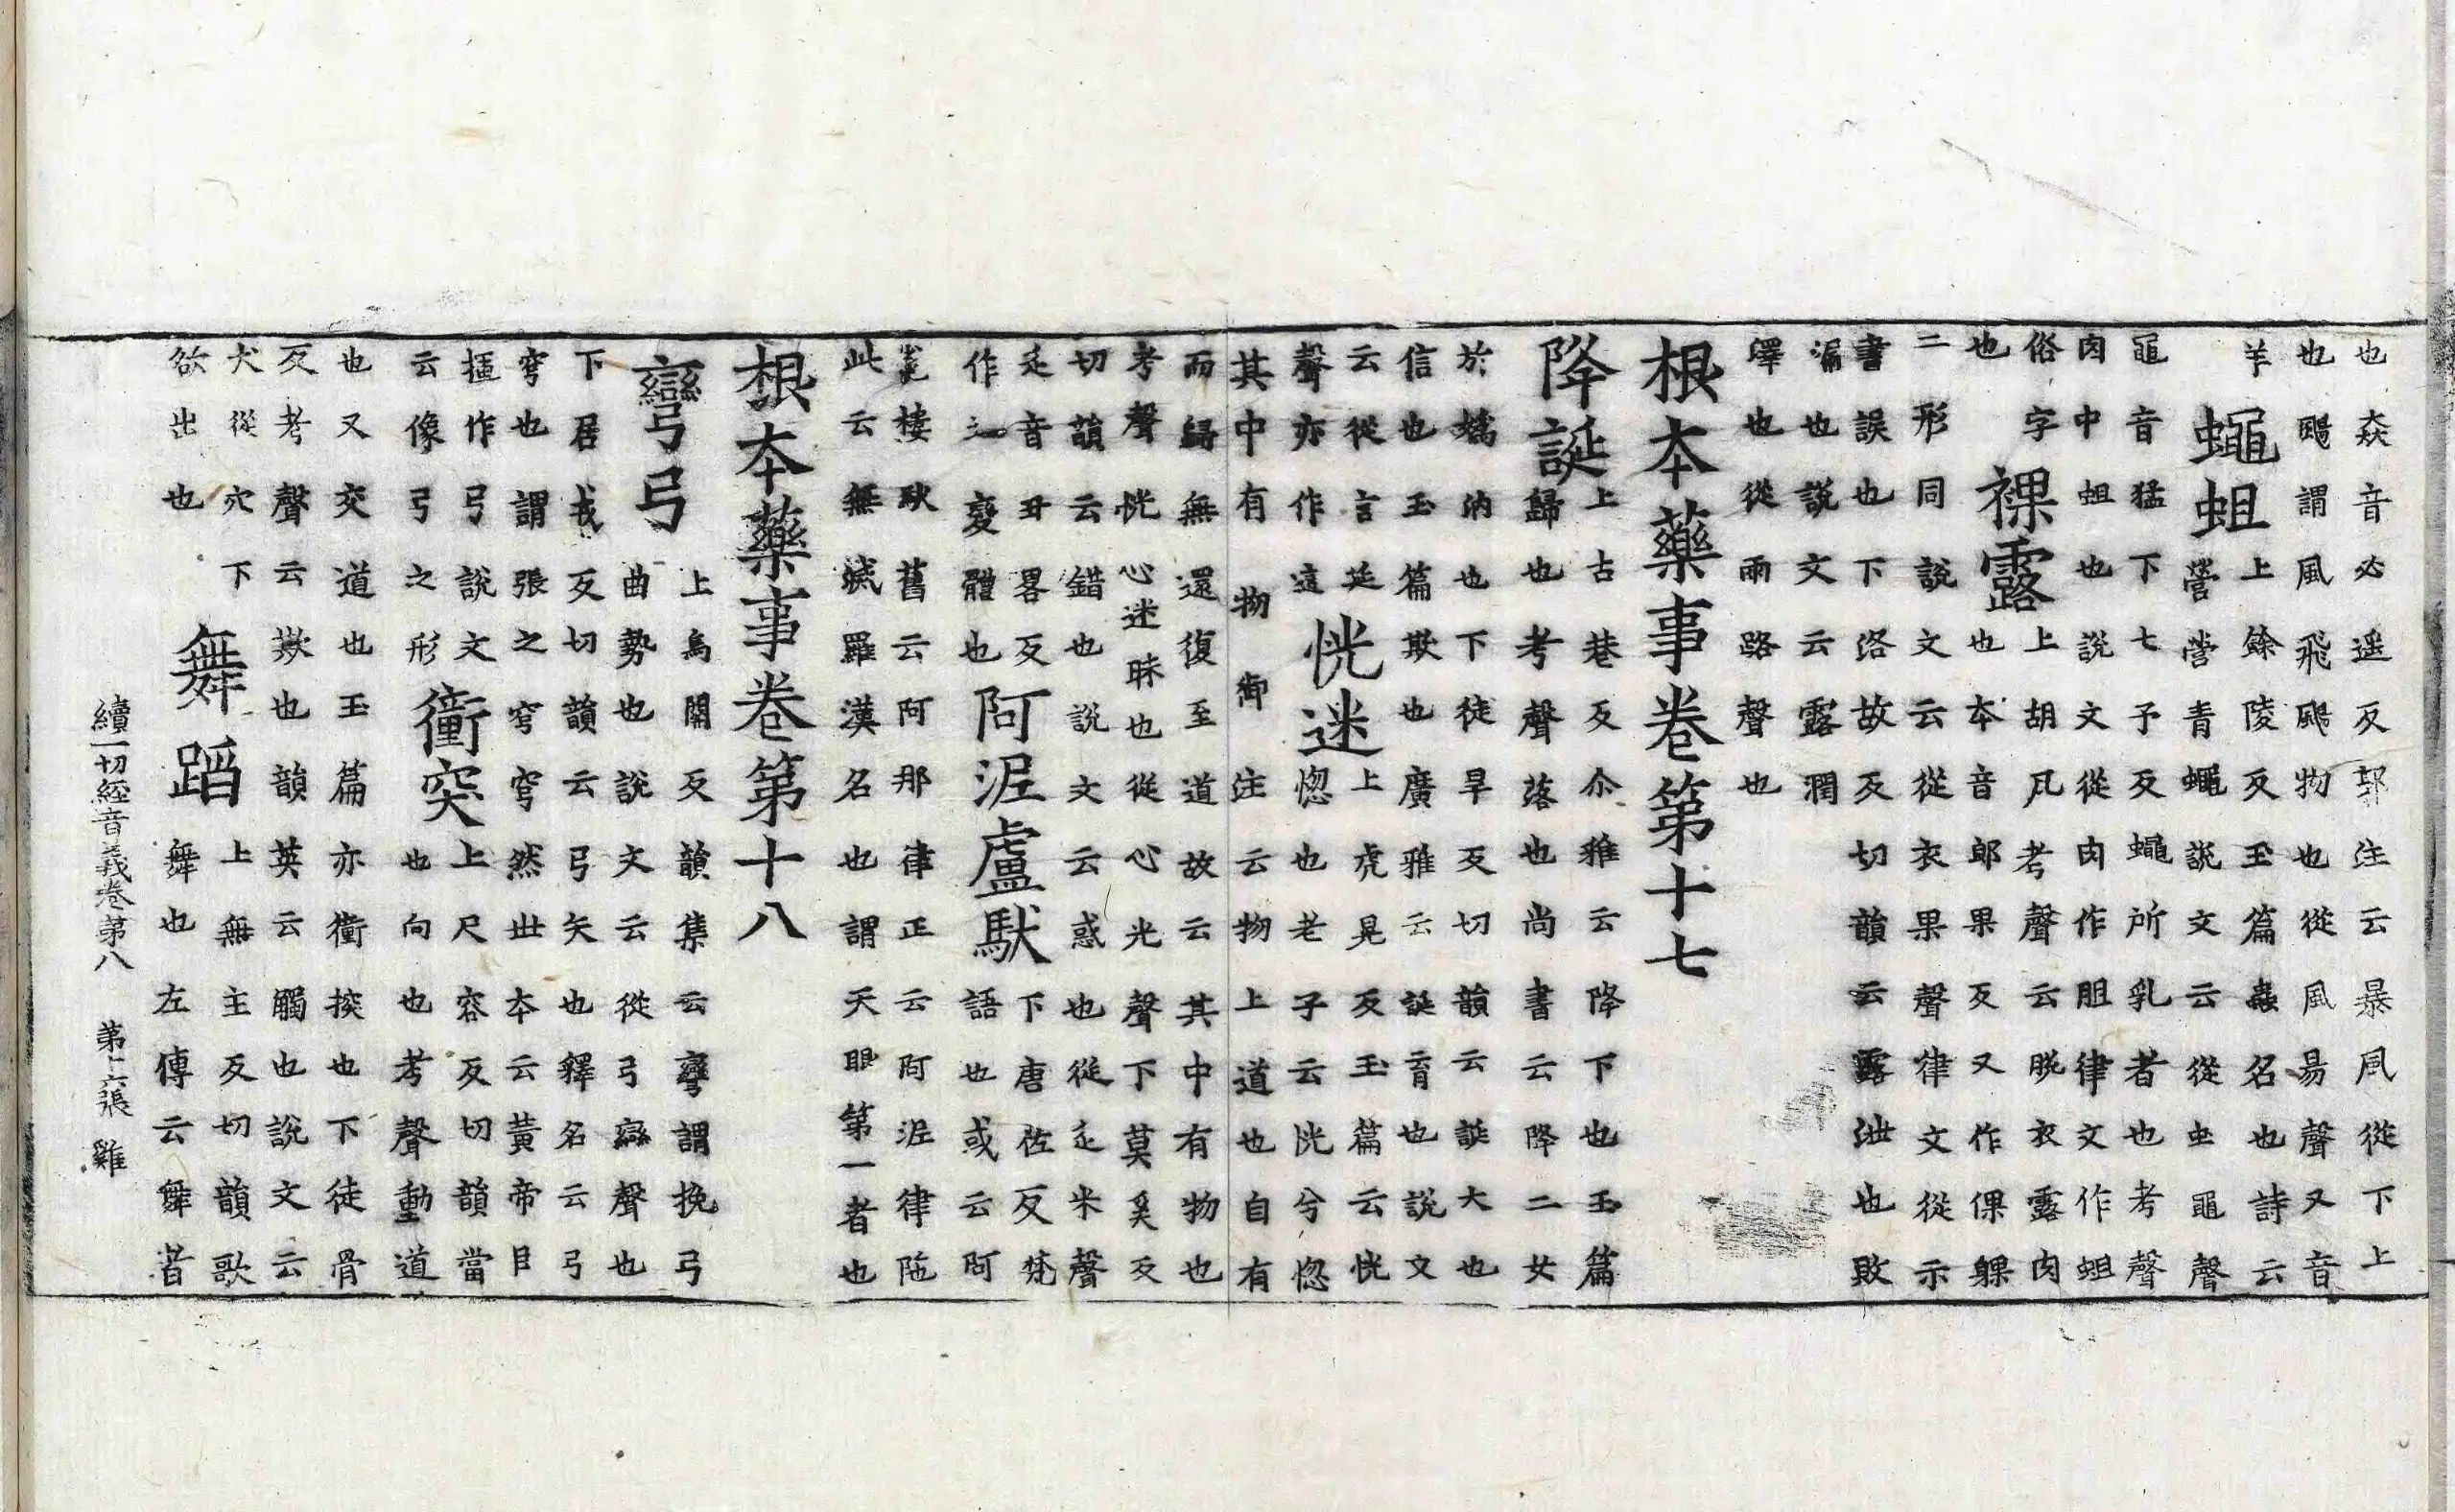 也猋音必遥反郭注云暴風從下上
也颺謂風飛颺物也從風昜聲又音
羊
蠅蛆
上餘陵反玉篇蟲名也詩云
營營青蠅說文云從虫黽聲
黽音猛下七予反蠅所乳者也考聲
肉中蛆也說文從肉作胆律文作蛆
俗字
也
裸露
上胡凡考聲云脱衣露肉
也本音郎果反又作倮躶
二形同說文云從衣果聲律文從示
書誤也下洛故反切韻云露泄也敗
漏也說文云露潤
澤也從雨路聲也
根本藥事卷第十七
降誕
上古巷反尒雅云降下也玉篇
歸也考聲落也尚書云降二女
於嬀汭也下徒旱反切韻云誕大也
信也玉篇欺也廣雅云誕育也說文
云從言延
聲亦作這
恍迷
上虎晃反玉篇云恍
惚也老子云恍兮惚
其中有物御注云物上道也自有
而歸無還復至道故云其中有物也
考聲恍心迷昧也從心光聲下莫奚反
切韻云錯也說文云惑也從辵米聲
辵音丑畧反
作辶變體也
阿泥盧馱
下唐佐反梵
語也或云阿
㝹樓馱舊云阿那律正云阿泥律陁
此云無滅羅漢名也謂天眼第一者也
根本藥事卷第十八
彎弓
上烏關反韻集云彎謂挽弓
曲勢也說文云從弓䜌聲也
下居戎反切韻云弓矢也釋名云弓
穹也謂張之穹穹然世本云黃帝臣
揮作弓說文
云像弓之形
衝突
上尺容反切韻當
也向也考聲動道
也又交道也玉篇亦衝揬也下徒骨
反考聲云欺也韻英云觸也說文云
犬從穴下
欲出也
舞蹈
上無主反切韻歌
舞也左傳云舞者
續一切經音義卷第八 第十六張 雞